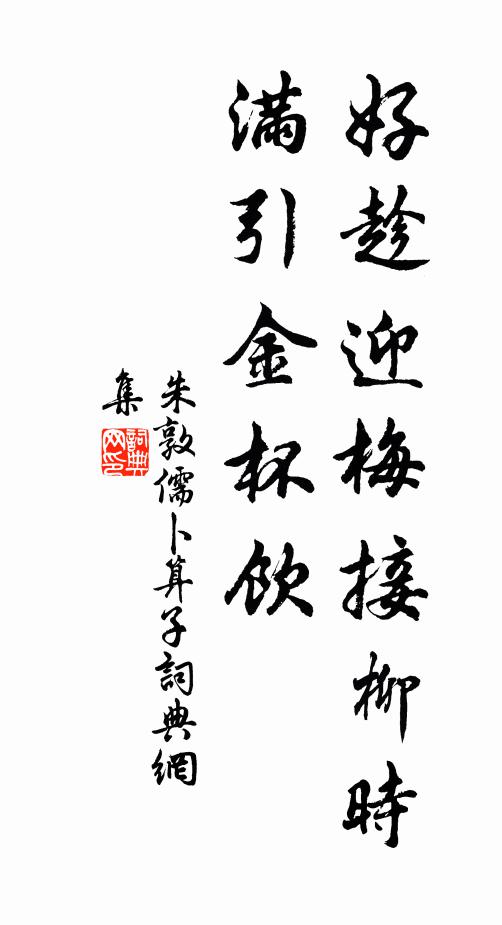 好趁迎梅接柳時
滿引金杯飲
朱敦儒卜算子詞典網
集
詞典网印